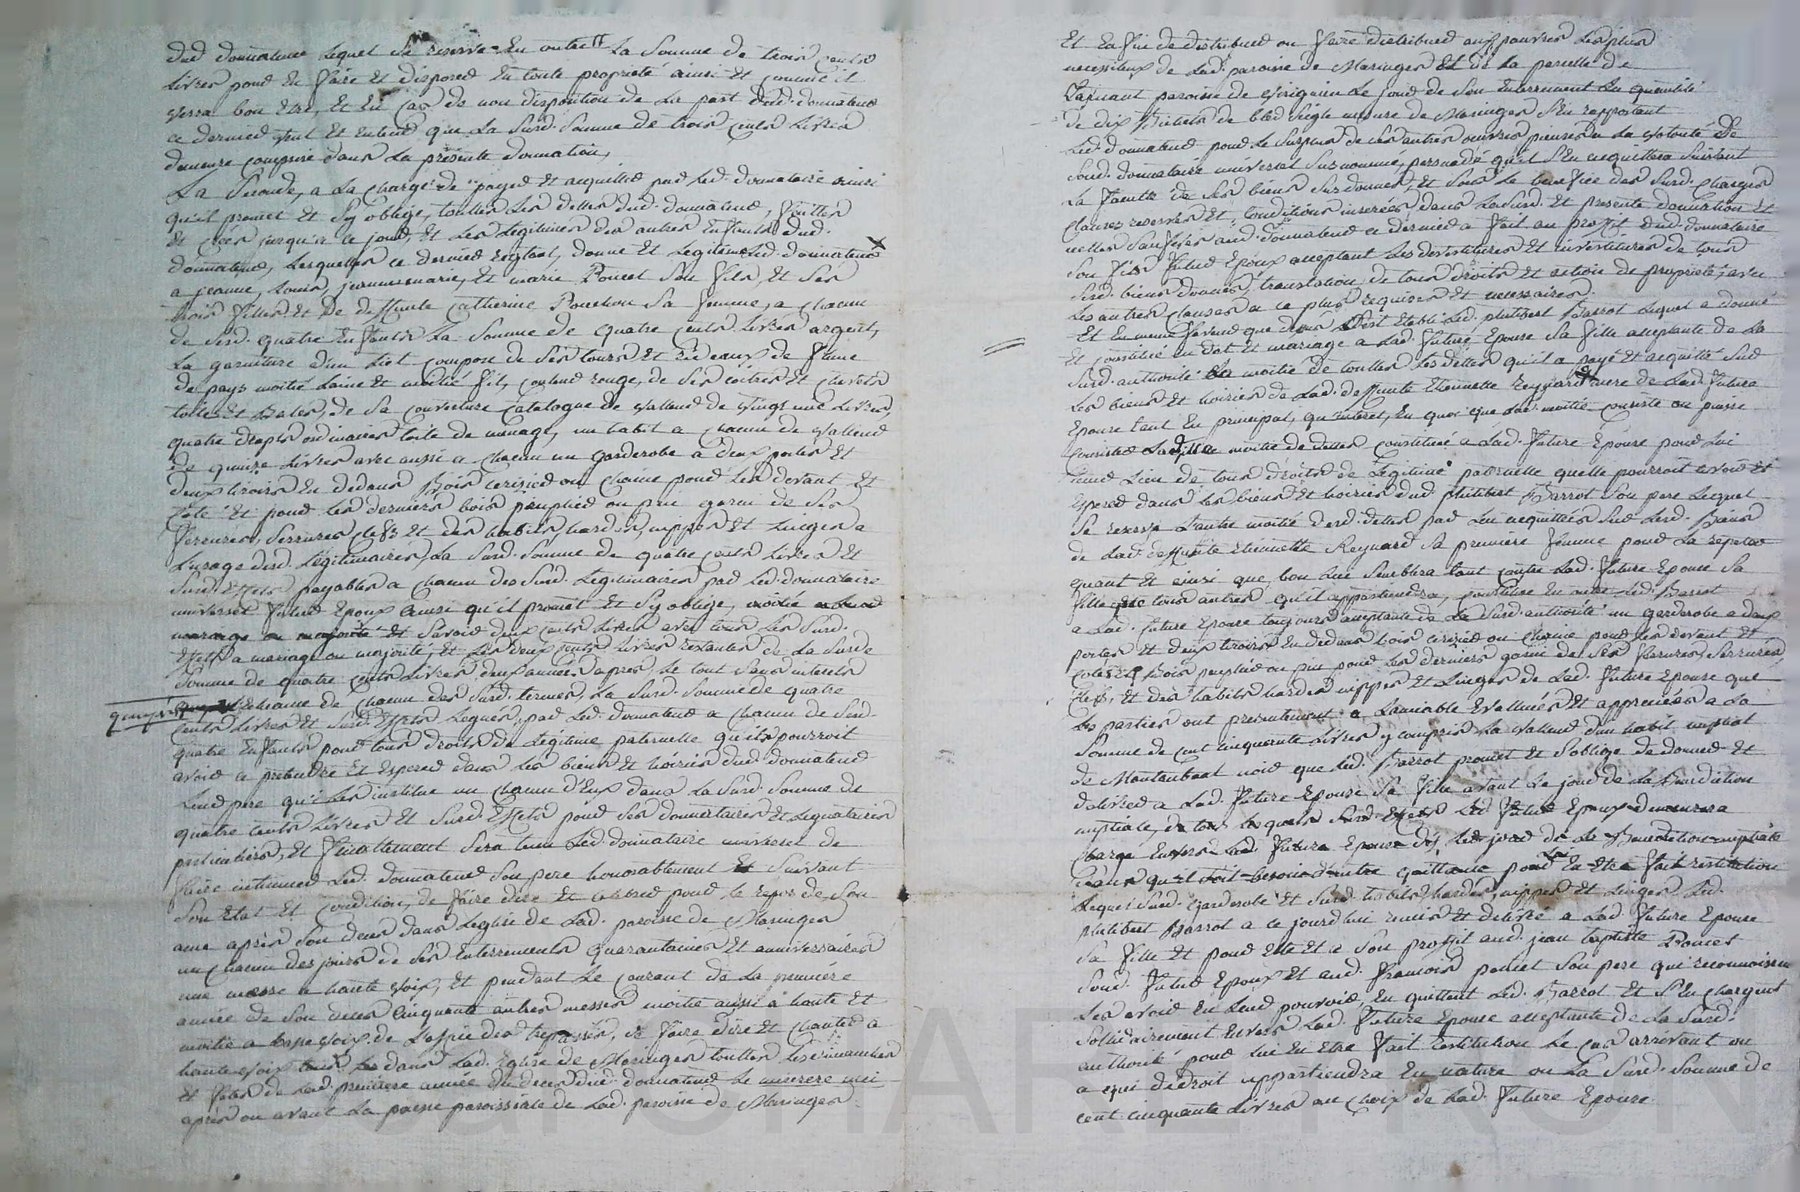 dud donnateur lequel se reserve en outre la somme de trois cents
livres pour en faire et disposer en toute proprieté ainsi et comme il
verra bon etre, et en cas de non disposition de la part dud. donnateur
ce dernier veut et entend que la susd. somme de trois cents livres
demeure comprise dans la présente donnation,
La seconde, a la charge de payer et acquitter par led. donnataire ainsi
qu'il promet et s'y oblige, touttes les dettes dud. donnateur,
et jusqu'a ce jour, et les legitimes des autres enfants dud.
donnateur, lesquelles ce dernier donne et led. donnateur
a jeanne, louis, jeannemarie, et marie Poncet son fils, et ses
trois filles et de deffunte Catherine Ponchon sa femme, a chacun
de sesd. quatre enfants la somme de quatre cents livres argent,
La garniture d'un lict composé de ses tours et rideaux de
de pays moitié laine et moitié fil, couleur rouge, de ses coitres et chevets
de sa couverture Catalogne de valleur de vingt une livres,
quatre draps ordinaires toile de menage, un habit a chacun de valleur
de quinze livres avec aussi a chacun un garderobe a deux portes et
deux tiroirs en dedans bois cerisier ou chaine pour les devant et
coté et pour les derniers bois peuplier ou pin garni de ses
ferrures, serrures clefs et des habits hardes, nippes et linges a
l'usage desd. legitimaires, la susd. somme de quatre cents livres et
susd. effets payables a chacun des susd. legitimaires par led. donnataire
universel futur epoux ainsi qu'il promet et s'y oblige,
et savoir deux cents livres avec tous les susd.
effets a mariage ou majorité, et les deux cents livres restantes de la susd.
somme de quatre cents livres deux années apres le tout sans interets
qu'a l'echéance de chacun des susd. termes, la susd. somme de quatre
cents livres et susd. effets legués, par led. donnateur a chacun de sesd.
quatre enfants pour tous droits de legitime paternelle qu'ils pourroit
avoir a pretendre et esperer dans les biens et hoiries dud. donnateur
leur pere qui les institue un chacun d'eux dans la susd. somme de
quatre cents livres et susd. effets pour ses donnataires et legataires
particuliers, et finallement sera tenu led. donnataire universel de
faire inhumer led. donnateur son pere honorablement et suivant
son etat et condition, de faire dire et celebrer pour le repos de son
ame après son deces dans l'eglise de lad. paroisse de Maringes
un chacun des jours de ses enterrements quarantaines et anniversaires
une messe a haute voix, et pendant le courant de la premiere
année de son deces cinquante autres messes moitié aussi a haute et
moitié a basse voix de l'office des trepassés, de faire dire et chanter a
haute voix dans lad. eglise de Maringes touttes les dimanches
et fetes de lad. premiere année du deces dud. donnateur le miserere mei
après ou avant la passe paroissiale de lad. paroisse de Maringes
Et enfin de distribuer ou faire distribuer aux pauvres les plus
necessiteux de lad. paroisse de Maringes et de la parcelle de
paroisse de le jour de son enterrement la quantité
de dix bichets de bled seigle mesure de Maringes s'en rapportant
led. donnateur pour le surplus de ses autres œuvres pieuses a la volonté de
sond. donnataire universel susnommé, persuadé qu'il s'en acquittera suivant
la faculté de ses biens susdonnés, et sous le benefice des susd. charges
clauses reserves et conditions inserées dans lad. et presente donnation et
aud. donnateur ce dernier a fait au proffit dud. donnataire
son fils futur epoux acceptant les devestitures et investitures de tous
sesd. biens donnés, translation de tous droits et action de proprieté, avec
les autres clauses a ce plus requises et necessaires.
Et en meme faveur que dessus s'est etabli led. philibert Barrot lequel a donné
et constitué en dot et mariage a lad. future epouse sa fille acceptante de la
susd. authorité la moitié de touttes les dettes qu'il a payé et acquitté sur
les biens et hoiries de lad. deffunte etiennette Reynard mere de lad. future
epouse tant en principal, qu'interet, en quoi que lad. moitié consiste ou puisse
consister moitié de dettes constitué a lad. future epouse pour lui
tenir lieu de tous droits de legitime paternelle quelle pourroit avoir et
esperer dans les biens et hoiries dud. philibert Barrot son pere lequel
se reserve l'autre moitié desd. dettes par lui acquittées sur lesd. biens
de lad. deffunte etiennette Reynard sa premiere femme pour la repeter
quant et ainsi que bon lui semblera tant contre lad. future epouse sa
fille que tous autres qu'il appartiendra, constitue en outre led. Barrot
a lad. future epouse toujours acceptante de la susd. authorité un garderobe a deux
portes et deux tiroirs en dedans bois cerisier ou chaine pour les devant et
cotés et bois peuplier ou pin pour les derniers garni de ses ferrures, serrures
clefs, et des habits hardes nippes et linges de lad. future epouse que
les parties ont presentement a l'amiable evallués et appreciés a la
somme de cent cinquante livres y compris la valleur d'un habit nuptial
de Montauban noir que led. Barrot promet et s'oblige de donner et
delivrer a lad. future epouse sa fille avant le jour de la benediction
nuptiale, de tous lesquels susd. effets led. futur epoux demeurera
chargé envers lad. future epouse dès led. jour de la benediction nuptiale
sans qu'il soit besoin d'autre quittance pour en etre fait restitution
lequel susd. garderobe et susd. habits hardes, nippes et linges led.
philibert Barrot a ce jourd'hui remis et delivré a lad. future epouse
sa fille et pour elle et a son proffit aud. jean baptiste Poncet
sond. futur epoux et aud. francois poncet son pere qui reconnoissent
les avoir en leur pouvoir, en quittent led. Barrot et s'en chargent
sollidairement envers lad. future epouse acceptante de la susd.
authorité pour lui en etre fait restitution le cas arrivant ou
a qui de droit appartiendra en nature ou la susd. somme de
cent cinquante livres au choix de lad. future epouse